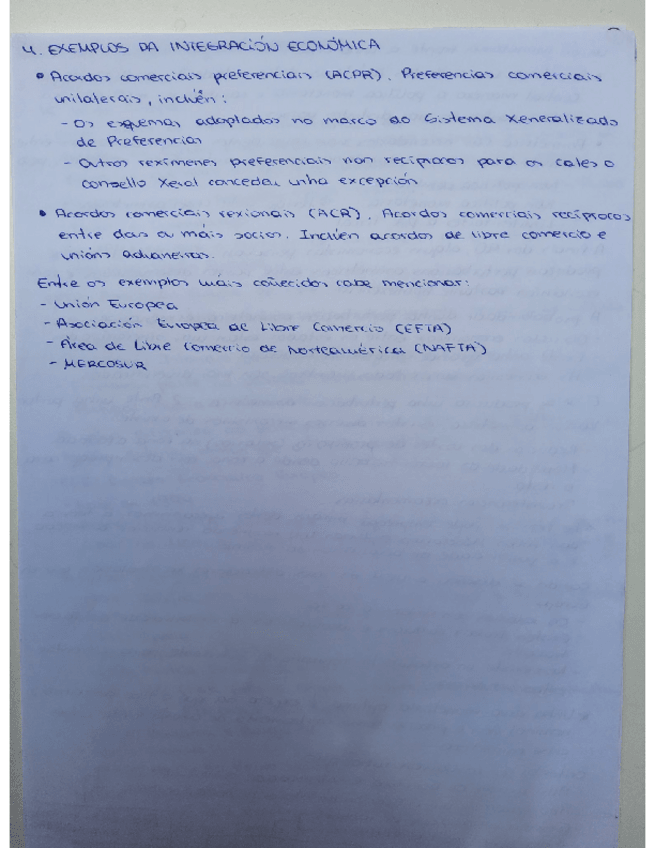 4. EXEMPLOS DA INTEGRACIÓN ECONÓMICA
• Acordos comerciais preferenciais (ACPR). Preferencias comerciais
unilaterais, inclúen:
- Os esquemas adoptados no marco do Sistema Xeneralizado
de Preferencias
- Outros rexímenes preferenciais non recíprocos para os cales o
consello Xeral conceda unha excepción
• Acordos comerciais rexionais (ACR). Acordos comerciais recíprocos
entre dous ou máis socios. Inclúen acordos de libre comercio e
unións aduaneiras.
Entre os exemplos mais coñecidos cabe mencionar:
- Unión Europea
- Asociación Europea de Libre Comercio (EFTA)
- Área de Libre Comercio de Norteamérica (NAFTA)
- MERCOSUR